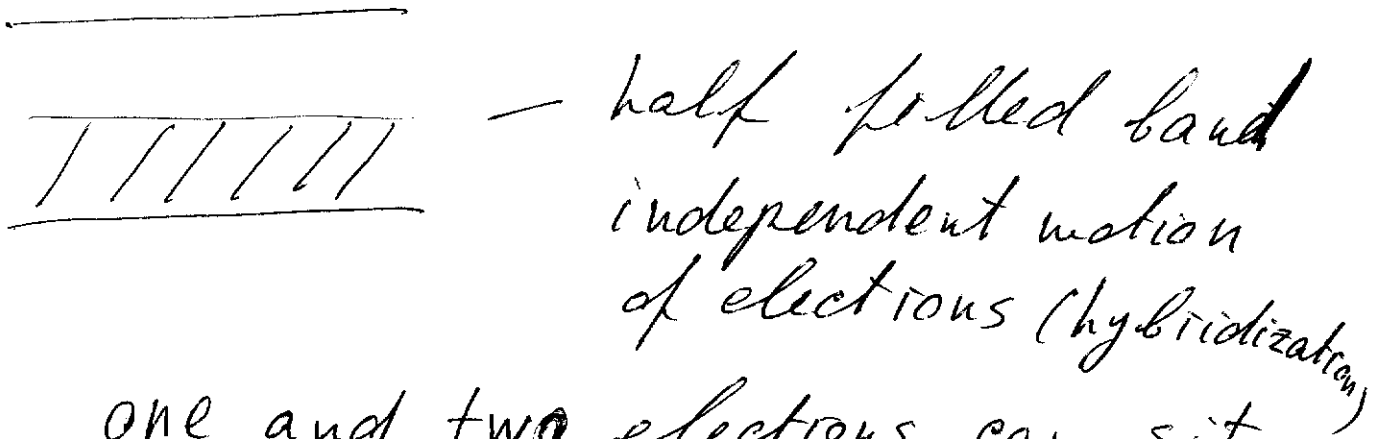 — half filled band
independent motion
of electrons (hybridization)
one and two electrons can sit